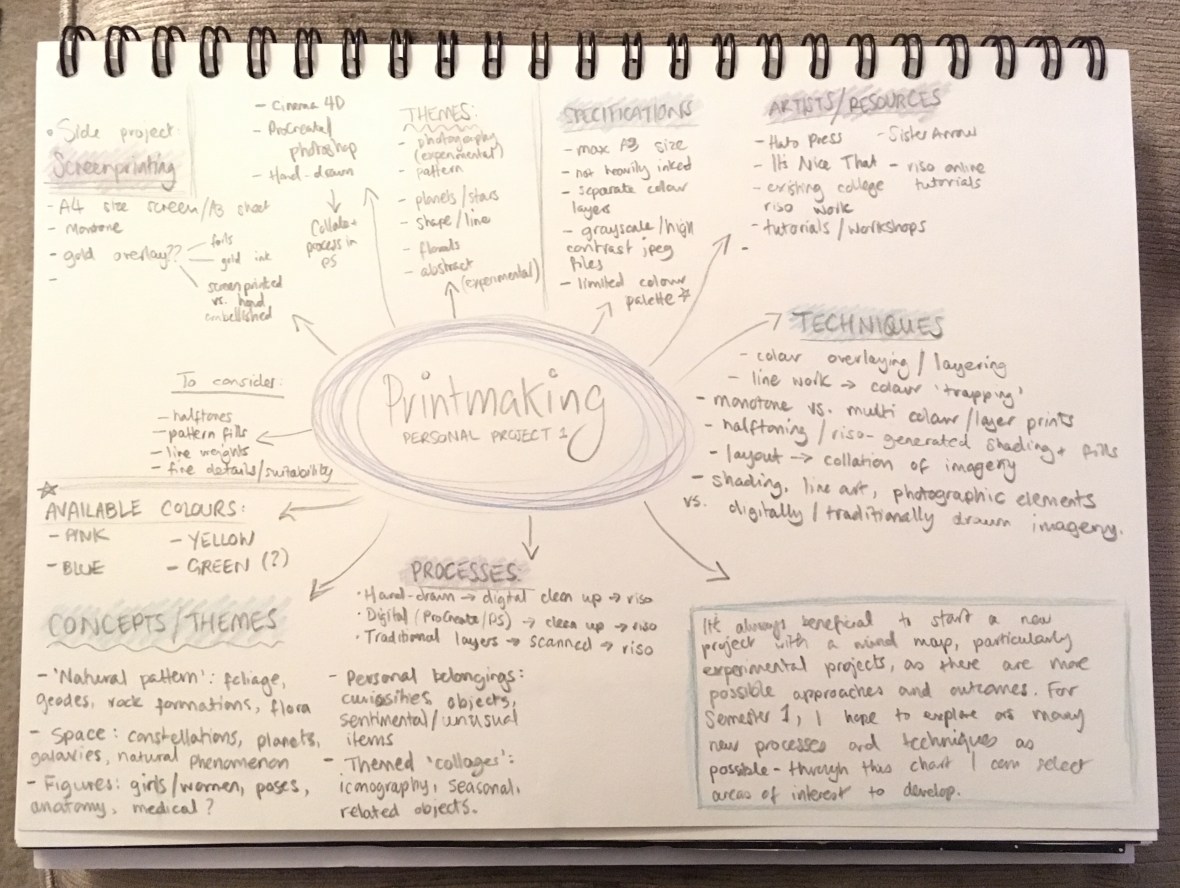 • Side project:
Screenprinting
- A4 size screen/A3 sheet
- Monotone
- gold overlay??
foils
gold ink
screenprinted
vs. hand
embellished
- Cinema 4D
- ProCreate/
photoshop
- Hand-drawn
Collate +
process in
PS
THEMES:
- photography
(experimental)
- pattern
- planets/stars
- shape/line
- florals
- abstract
(experimental)
SPECIFICATIONS
- max A3 size
- not heavily inked
- separate colour
layers
- grayscale/high
contrast jpeg
files
- limited colour
palette
ARTISTS/RESOURCES
- Hato Press
- It's Nice That
- existing college
riso work
- tutorials/workshops
-
- Sister Arrow
- riso online
tutorials
TECHNIQUES
- colour overlaying/layering
- line work → colour 'trapping'
- monotone vs. multi colour/layer prints
- halftoning/riso-generated shading + fills
- layout → collation of imagery
- shading, line art, photographic elements
vs. digitally/traditionally drawn imagery.
Printmaking
PERSONAL PROJECT 1
To consider:
- halftones
- pattern fills
- line weights
- fine details/suitability
AVAILABLE COLOURS:
- PINK - YELLOW
- BLUE - GREEN (?)
PROCESSES:
• Hand-drawn → digital clean up → riso
• Digital (ProCreate/PS) → clean up → riso
• Traditional layers → scanned → riso
CONCEPTS/THEMES
- 'Natural pattern': foliage,
geodes, rock formations, flora
- Space: constellations, planets,
galaxies, natural phenomenon
- Figures: girls/women, poses,
anatomy, medical?
- Personal belongings:
curiosities, objects,
sentimental/unusual
items
- Themed 'collages':
iconography, seasonal,
related objects.
It's always beneficial to start a new
project with a mind map, particularly
experimental projects, as there are more
possible approaches and outcomes. For
Semester 1, I hope to explore as many
new processes and techniques as
possible - through this chart I can select
areas of interest to develop.